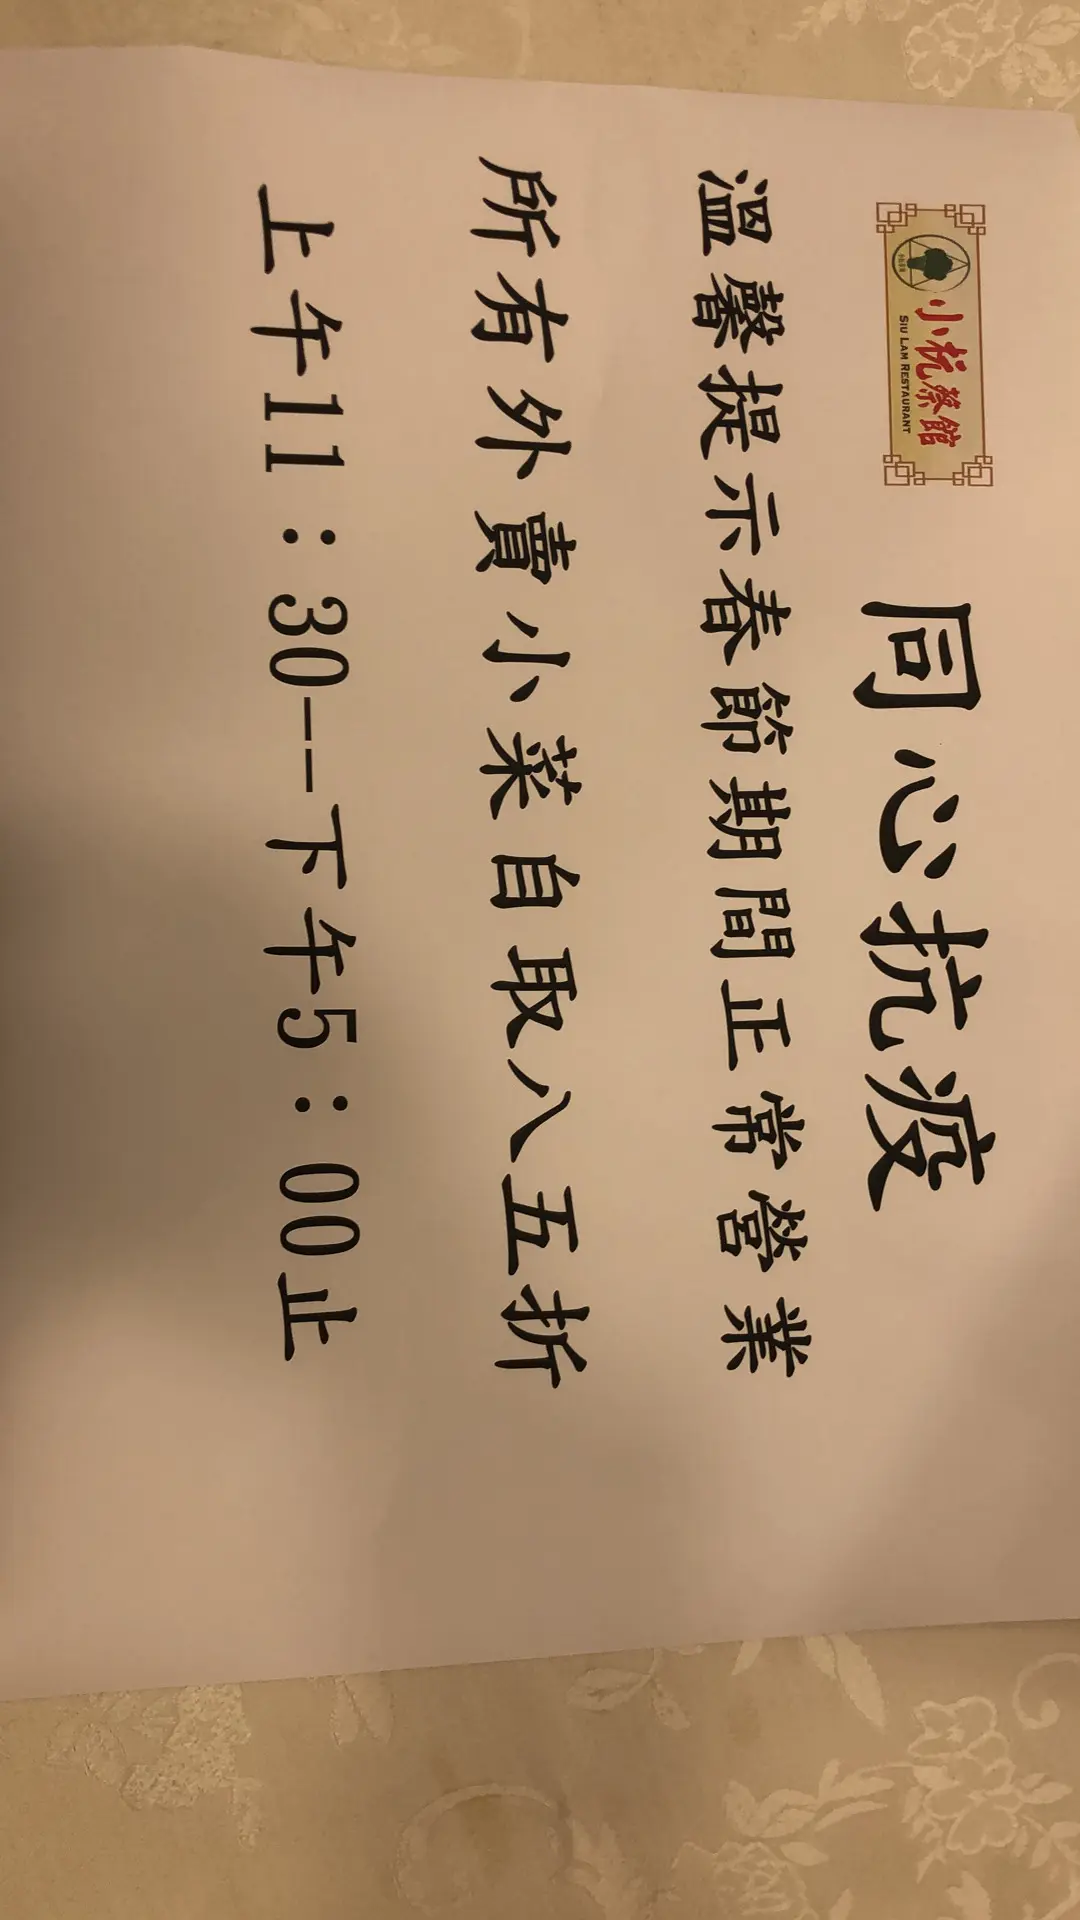 小杬祭館
SIU LAM RESTAURANT
同心抗疫
溫馨提示春節期間正常營業
所有外賣小菜自取八五折
上午11:30--下午5:00止